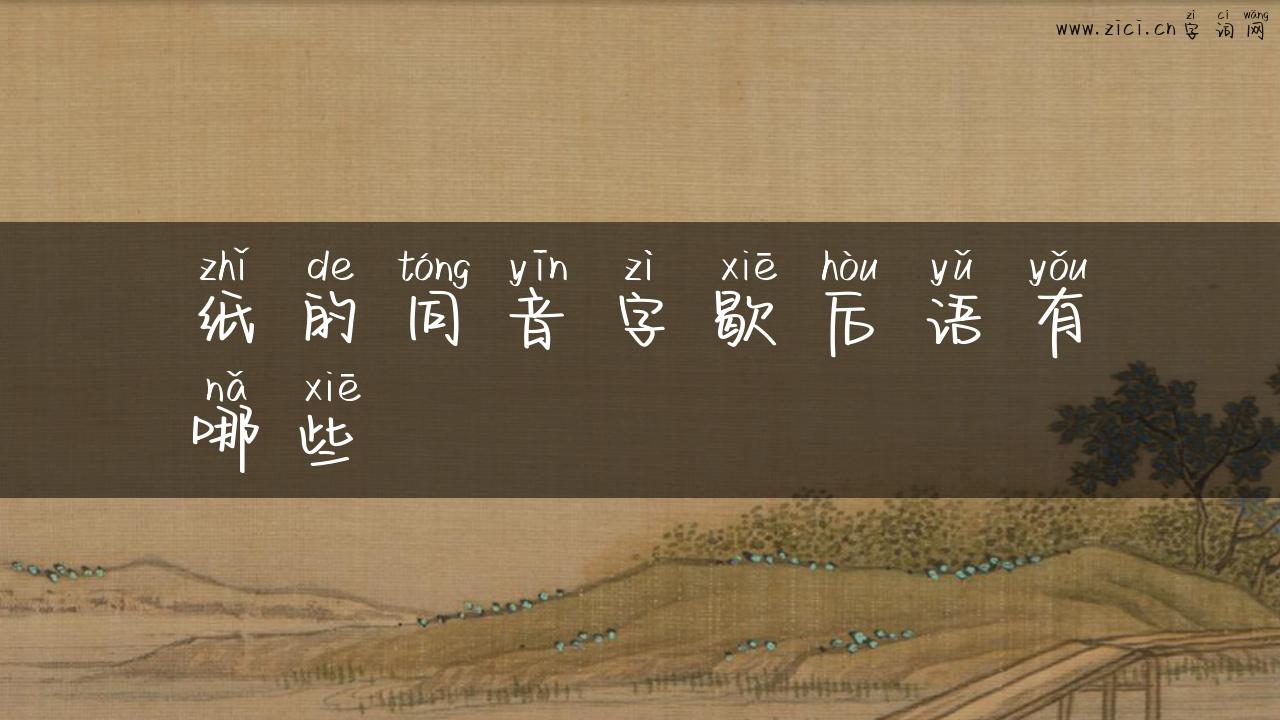 zì cí wǎng
www.zici.cn字词网
zhǐ de tóng yīn zì xiē hòu yǔ yǒu
纸的同音字歇后语有
nǎ xiē
哪些